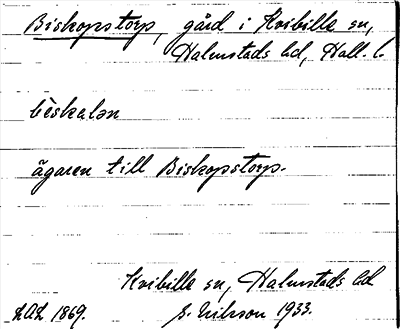 Biskopstorp, gård i Kvibille sn,
Halmstads hd, Hall. l.
bèskalən
ägaren till Biskopstorp.
Kvibille sn, Halmstads hd
LAL 1869. E. Nilsson 1933.